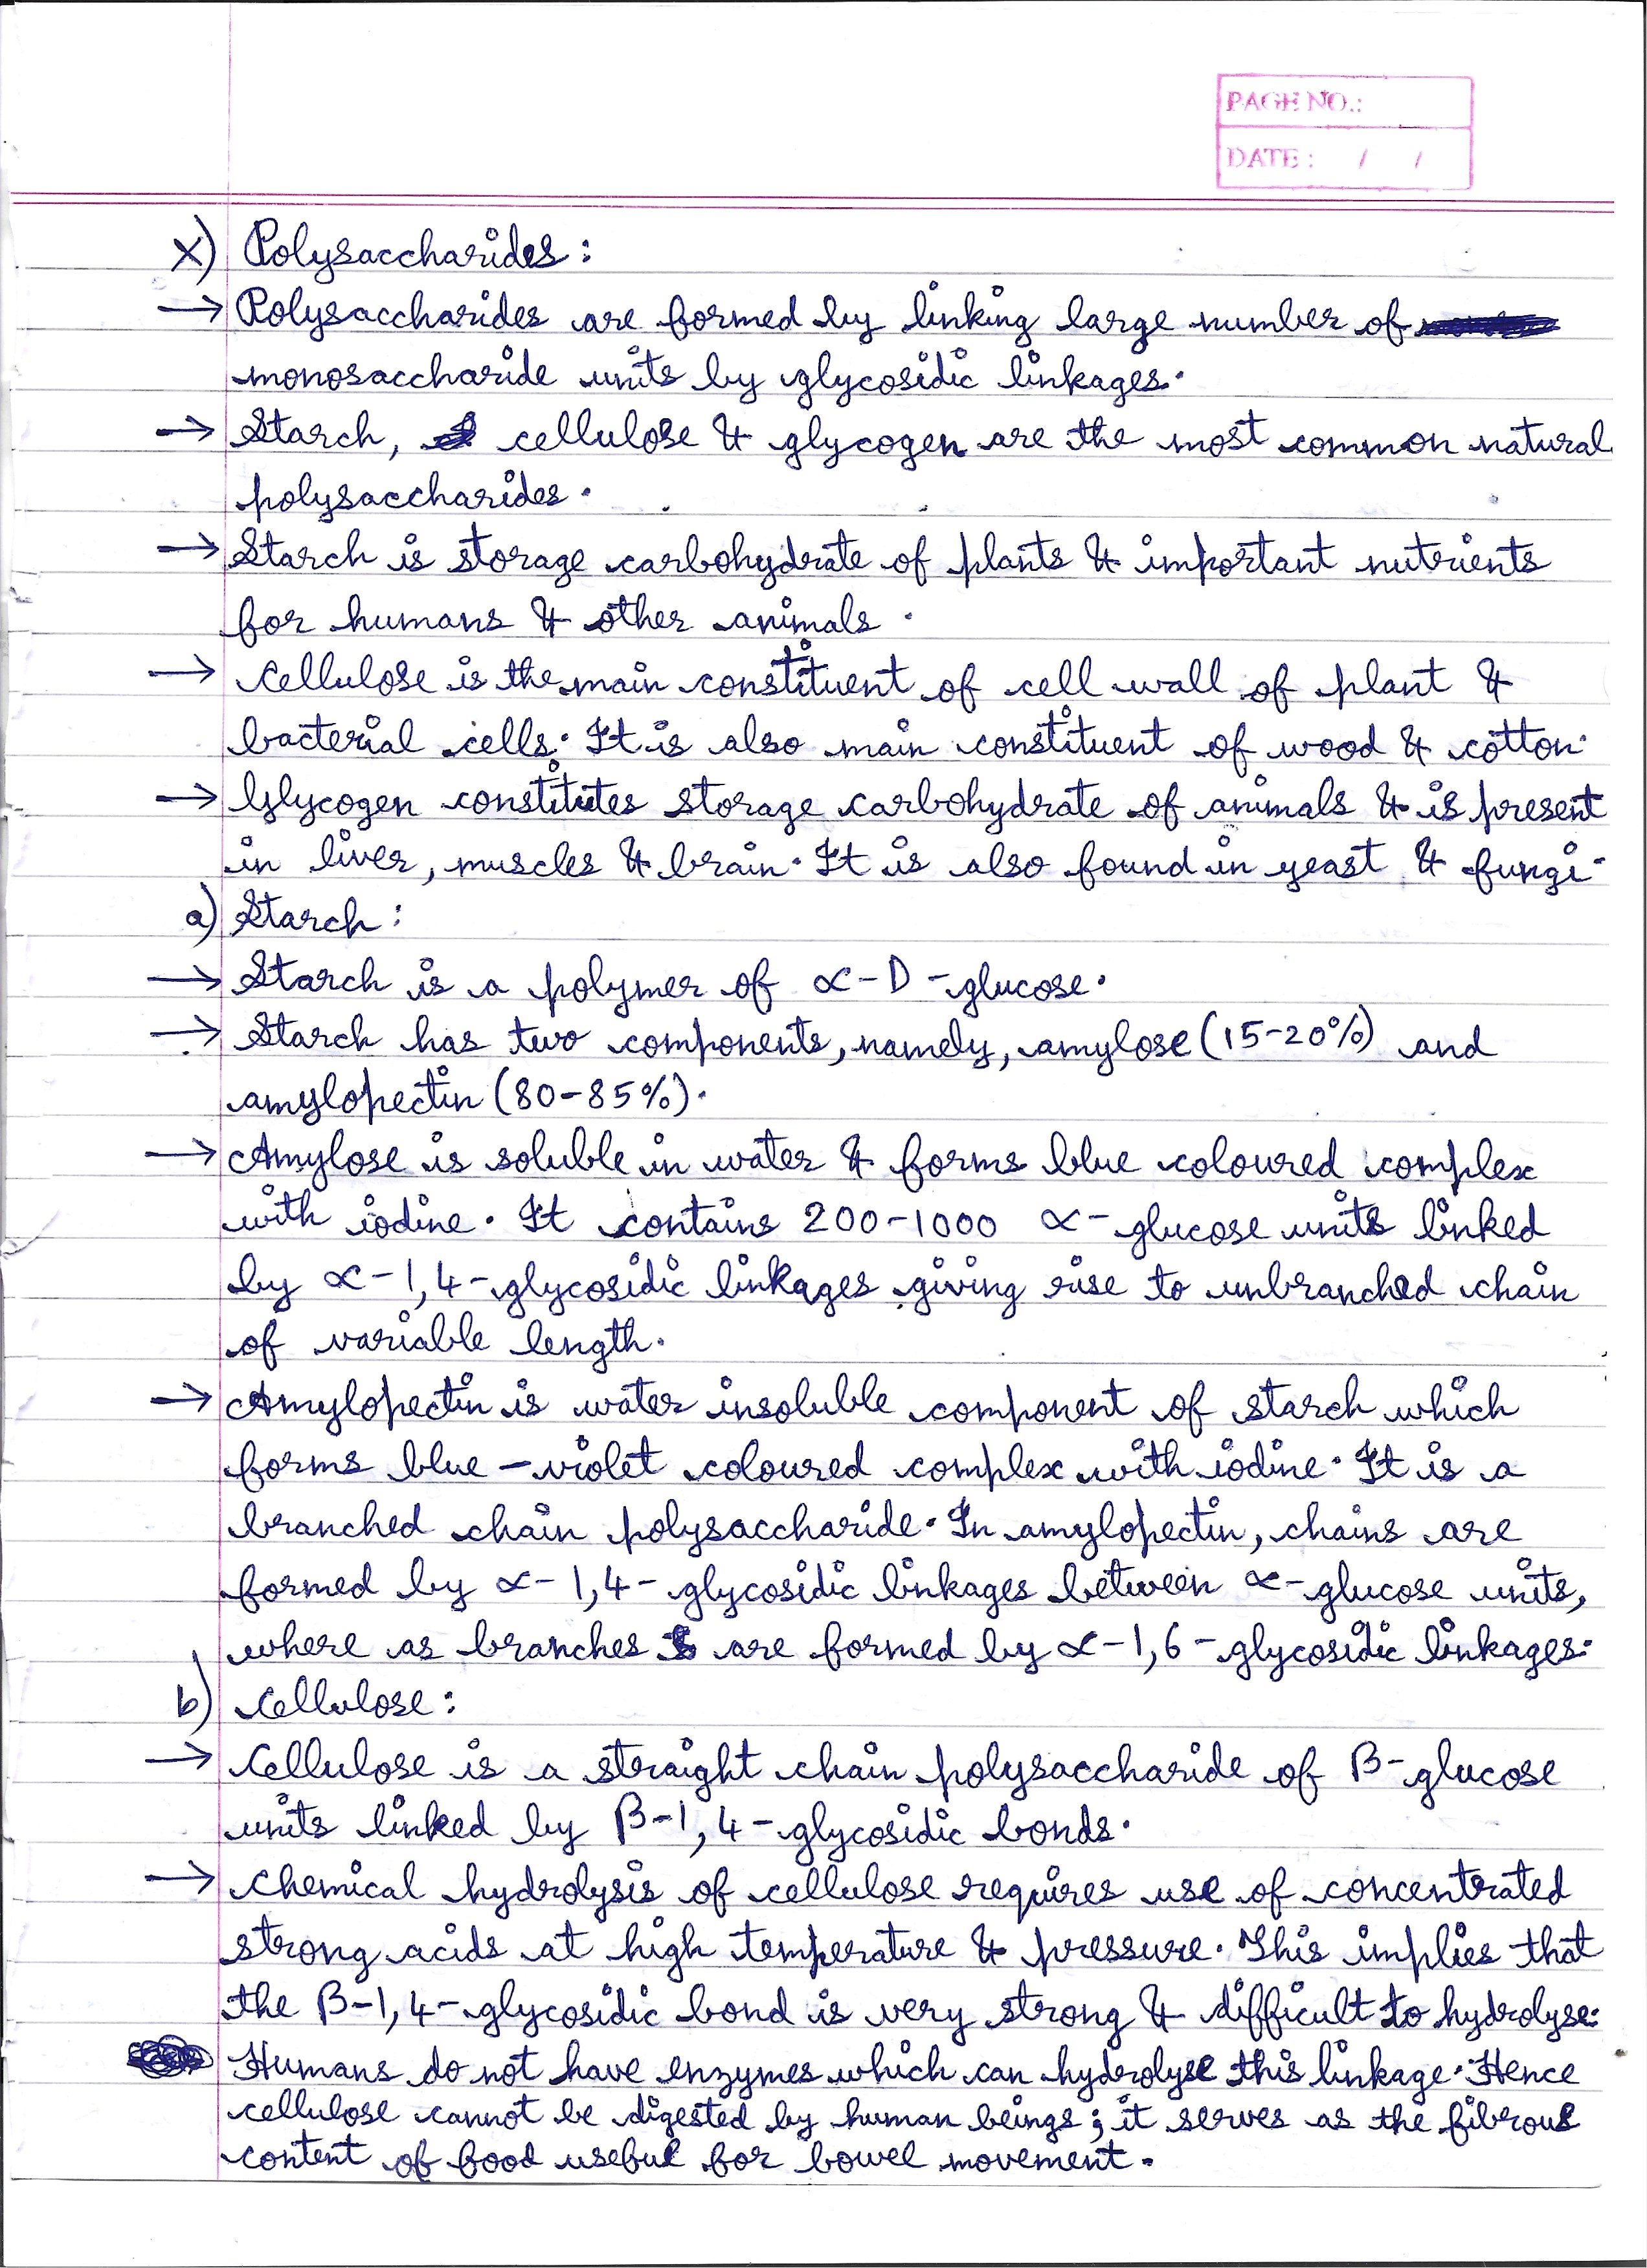 PAGE NO.:
DATE : / /
X) Polysaccharides :
→ Polysaccharides are formed by linking large number of
monosaccharide units by glycosidic linkages.
→ Starch, cellulose & glycogen are the most common natural
polysaccharides.
→ Starch is storage carbohydrate of plants & important nutrients
for humans & other animals.
→ Cellulose is the main constituent of cell wall of plant &
bacterial cells. It is also main constituent of wood & cotton.
→ Glycogen constitutes storage carbohydrate of animals & is present
in liver, muscles & brain. It is also found in yeast & fungi.
a) Starch :
→ Starch is a polymer of α-D-glucose.
→ Starch has two components, namely, amylose (15-20%) and
amylopectin (80-85%).
→ Amylose is soluble in water & forms blue coloured complex
with iodine. It contains 200-1000 α-glucose units linked
by α-1,4-glycosidic linkages giving rise to unbranched chain
of variable length.
→ Amylopectin is water insoluble component of starch which
forms blue-violet coloured complex with iodine. It is a
branched chain polysaccharide. In amylopectin, chains are
formed by α-1,4-glycosidic linkages between α-glucose units,
where as branches are formed by α-1,6-glycosidic linkages.
b) Cellulose :
→ Cellulose is a straight chain polysaccharide of β-glucose
units linked by β-1,4-glycosidic bonds.
→ Chemical hydrolysis of cellulose requires use of concentrated
strong acids at high temperature & pressure. This implies that
the β-1,4-glycosidic bond is very strong & difficult to hydrolyse.
Humans do not have enzymes which can hydrolyse this linkage. Hence
cellulose cannot be digested by human beings; it serves as the fibrous
content of food useful for bowel movement.